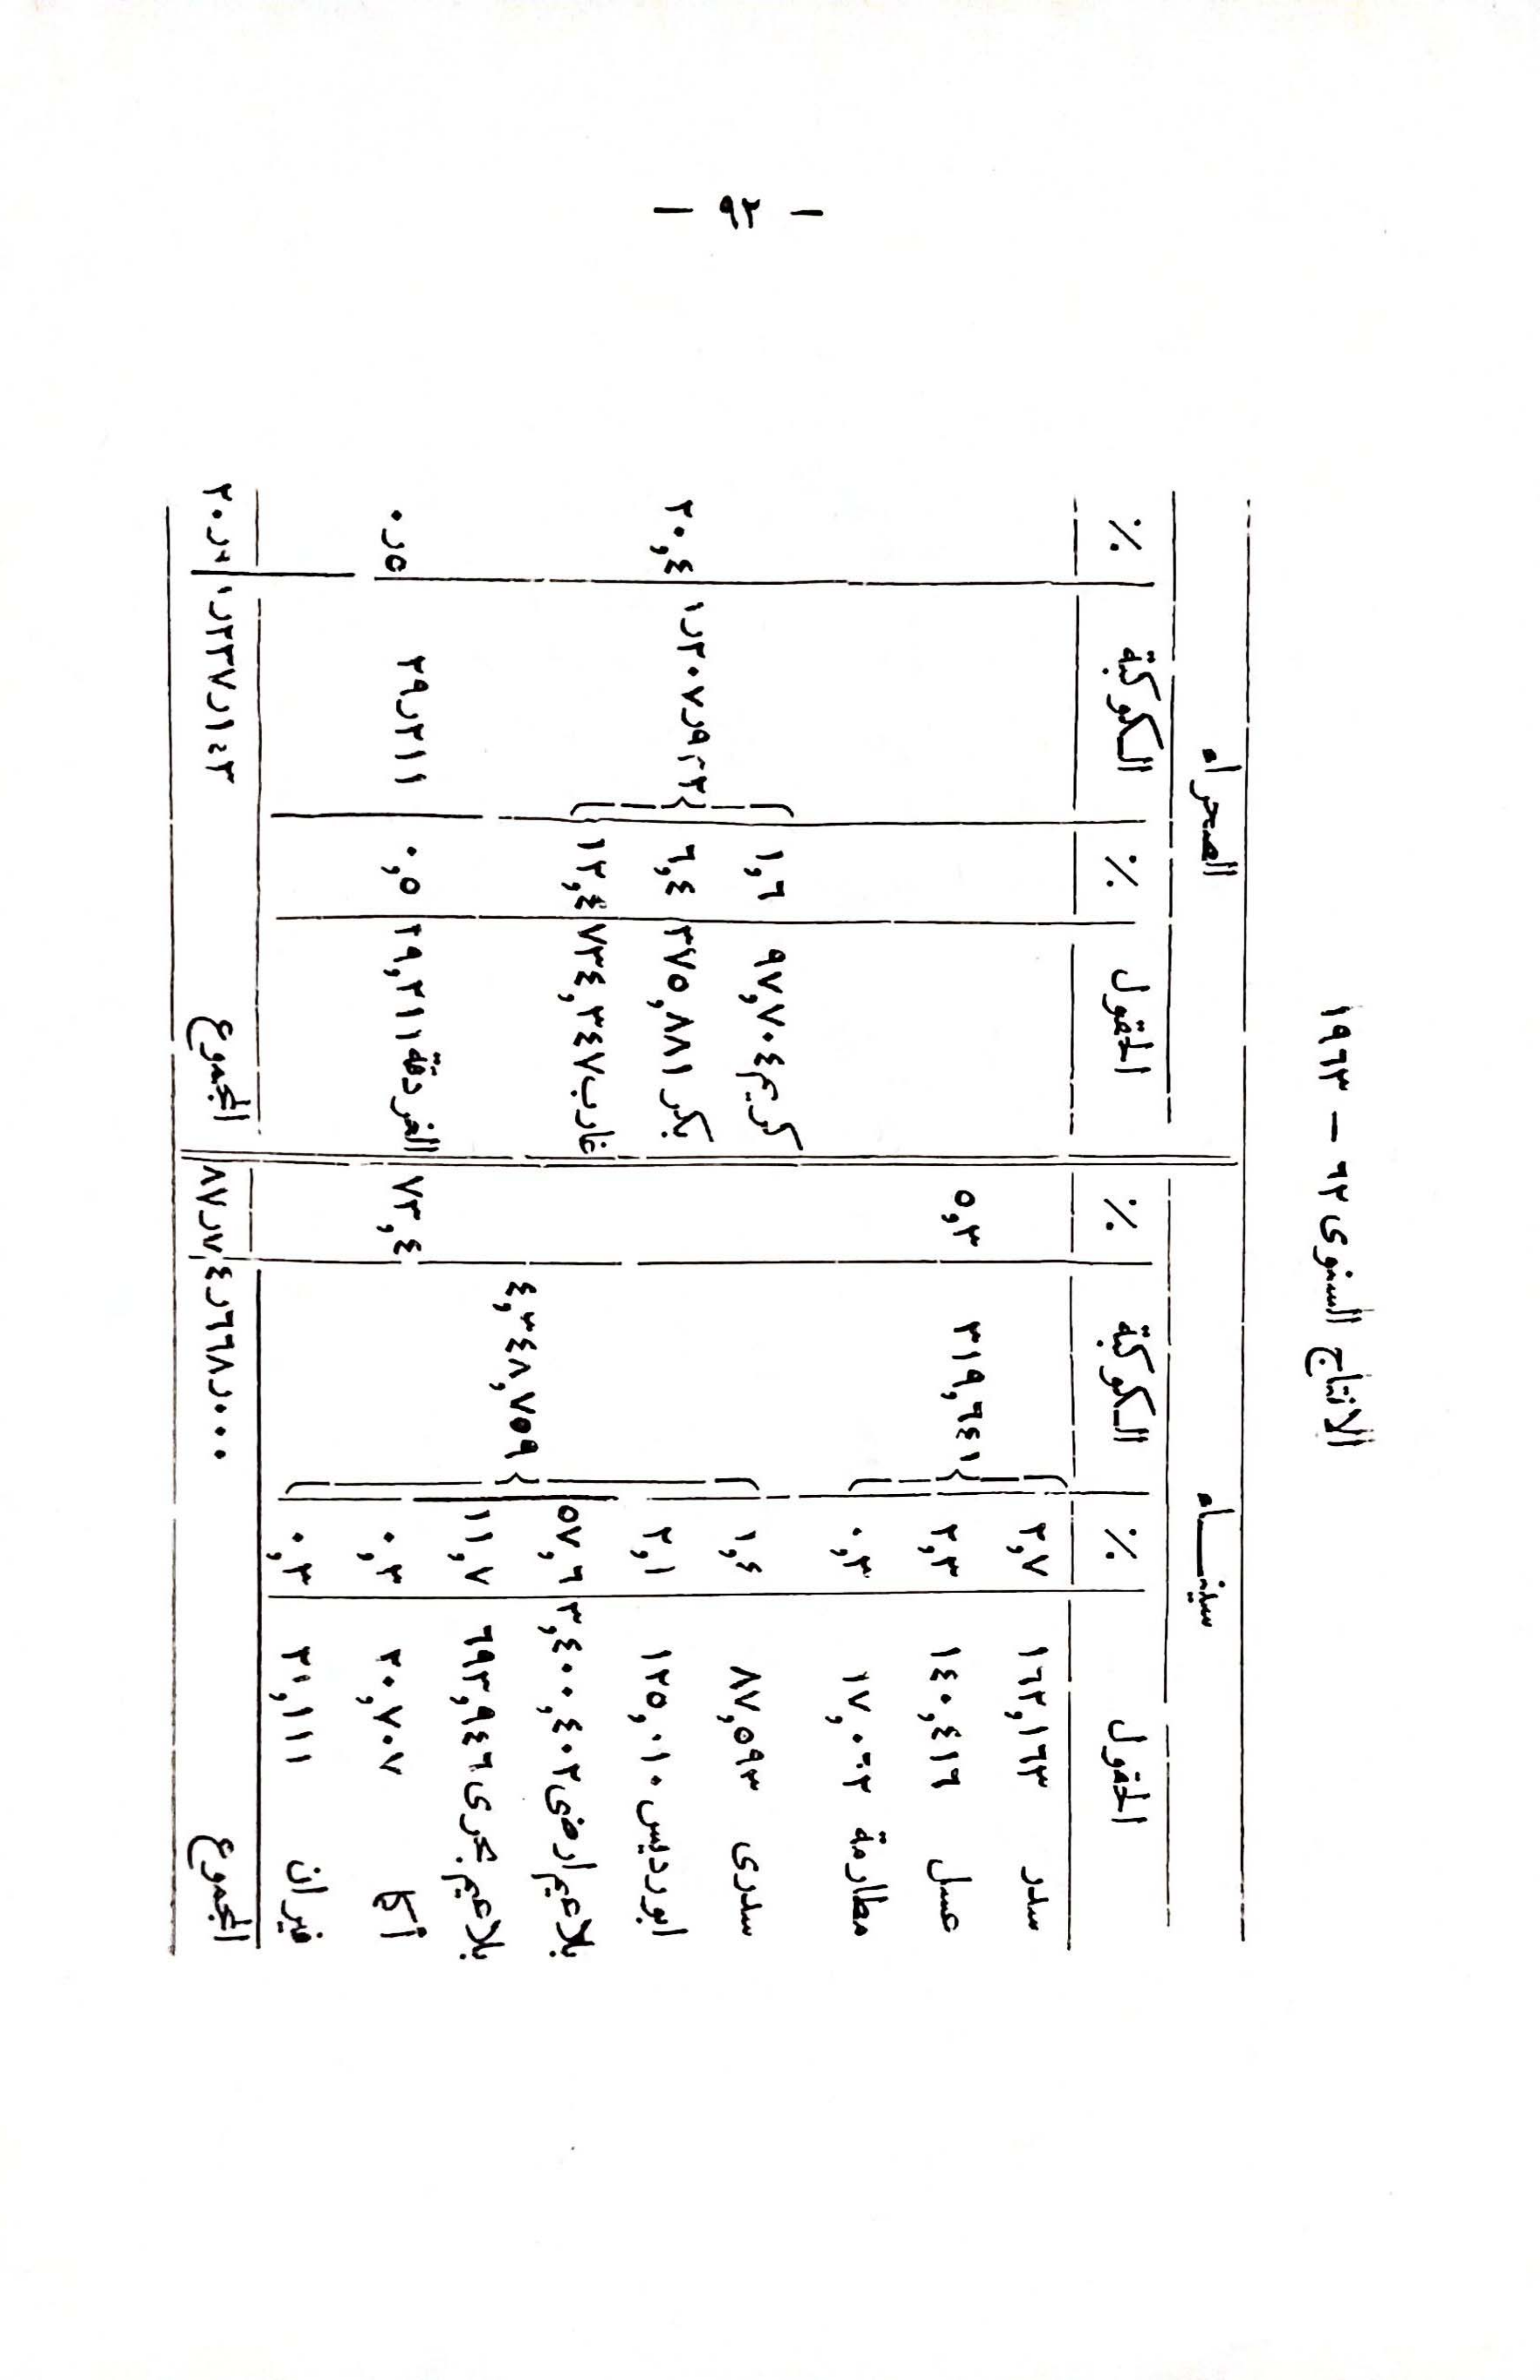 — ٩٢ —
الانتاج السنوى ٦٢ — ١٩٦٣
سينـــاء الصحراء
الحقول ٪ الكوكبة ٪ الحقول ٪ الكوكبة ٪
سدر ١٦٢,١٦٣ ٢,٧
عسل ١٤٠,٤١٦ ٢,٣ ٣١٩,٦٤١ ٥,٣
مطارمة ١٧,٠٦٢ ٠,٣
سدرى ٨٧,٥٩٣ ١,٤ كريم ٩٧,٧٠٤ ١,٦
ابورديس ١٢٥,٠١٠ ٢,١ بكر ٣٧٥,٨٨١ ٦,٤ ٢٠,٤
بلاعيم ارضى ٣,٤٠٠,٤٠٢ ٥٧,٦ ٤,٣٤٨,٧٥٩ غارب ٧٣٤,٣٤٧ ١٢,٤
بلاعيم بحرى ٦٩٣,٩٤٦ ١١,٧
أكا ٢٠,٧٠٧ ٠,٣ ٧٣,٤ الغردقة ٢٩,٢١١ ٠,٥ ٢٩ر٢١١ ٠ر٥
فيران ٢١,١١١ ٠,٣
المجموع ٤ر٦٦٨ر٠٠٠ ٧ر٨٧ المجموع ١ر٢٣٧ر١٤٣